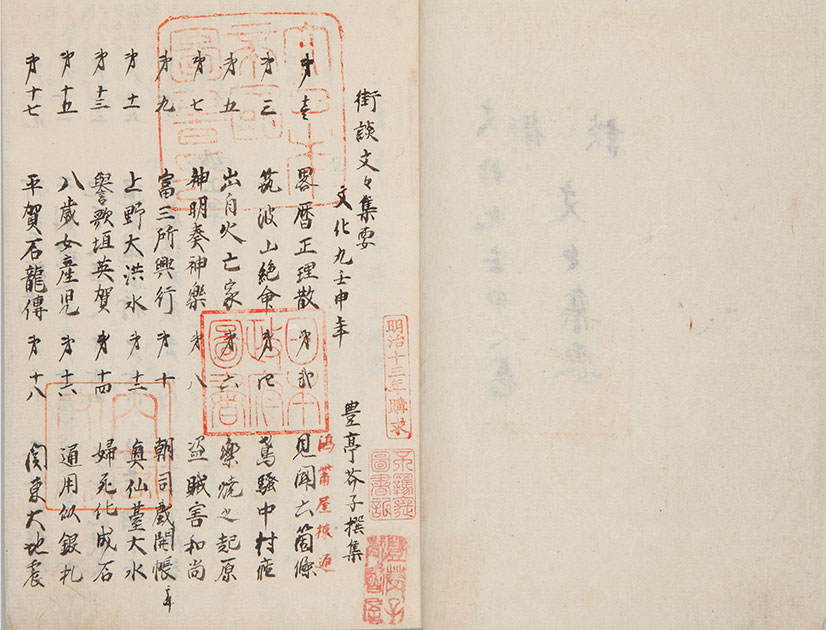 街談文々集要
文化九壬申年
豊亭芥子撰集
第壱 畧暦正理散 第弐 見聞六箇條
第三 筑波山絶命 第四 鳶騒中村座
第五 出自火亡家 第六 楽焼之起原
第七 神明奏神樂 第八 盗賊害和尚
第九 富三所興行 第十 朝同戯開帳
第十一 上野大洪水 第十二 奥仙臺大水
第十三 誉歌垣英賀 第十四 婦死化成石
第十五 八歳女産児 第十六 通用似銀札
第十七 平賀石龍傳 第十八 関東大地震
明治十三年購求
日本政府圖書